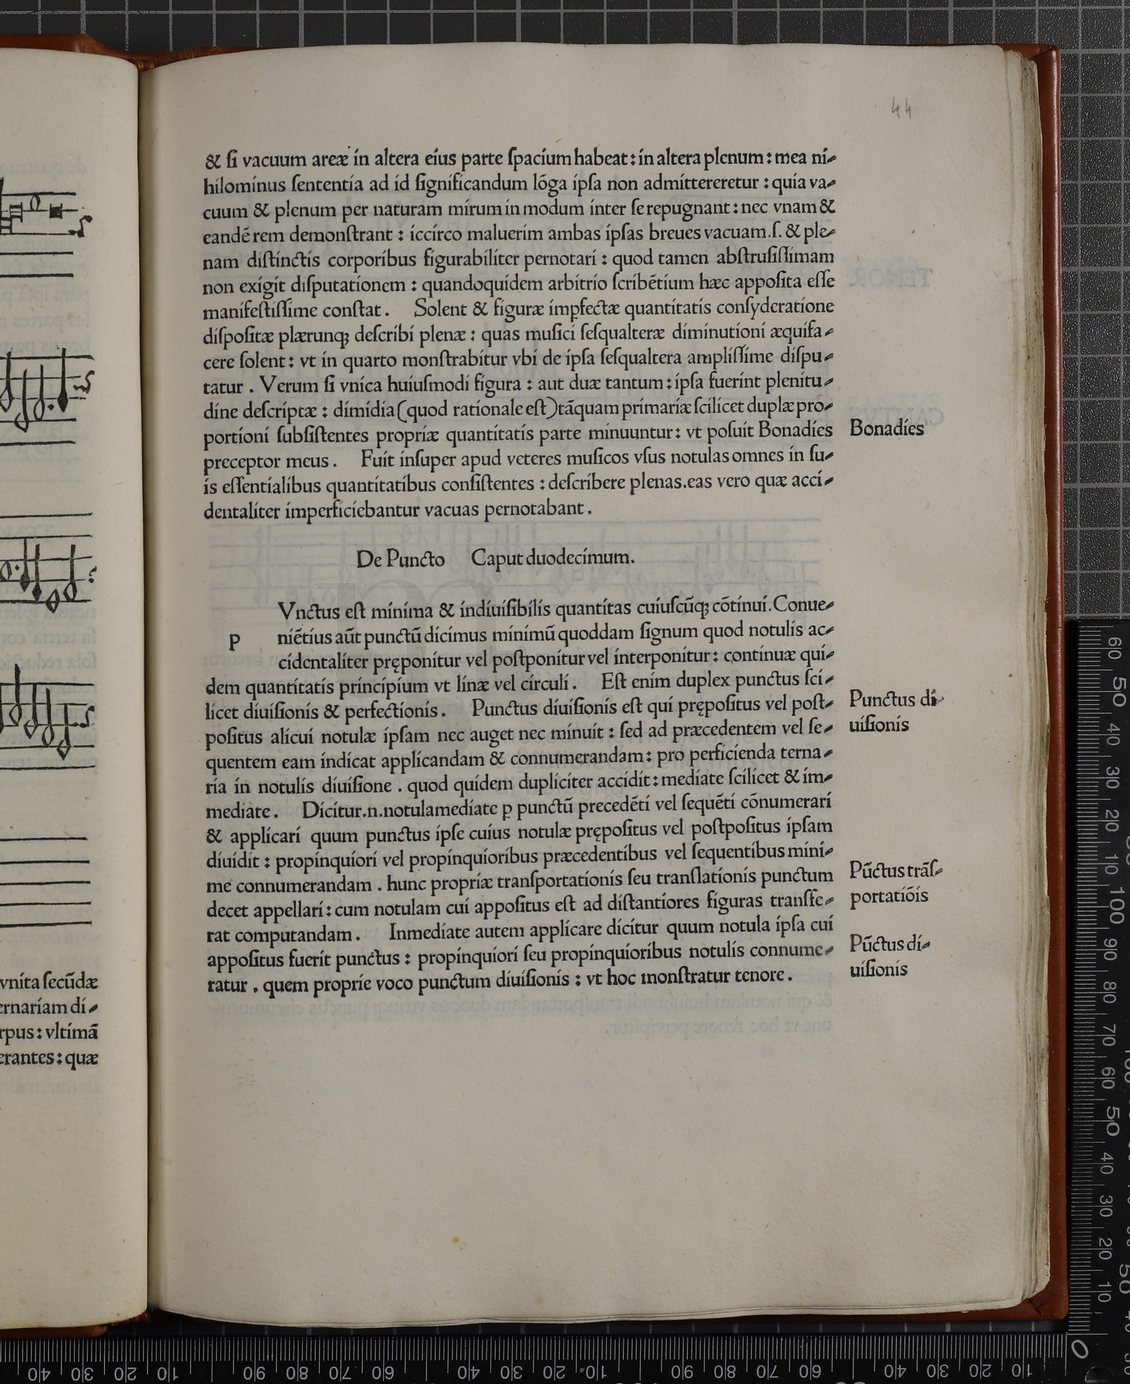 44
& ſi vacuum areæ in altera eius parte ſpacium habeat : in altera plenum : mea ni-
hilominus ſententia ad id ſignificandum lõga ipſa non admittereretur : quia va-
cuum & plenum per naturam mirum in modum inter ſe repugnant : nec vnam &
eandẽ rem demonſtrant : iccirco maluerim ambas ipſas breues vacuam .ſ. & ple-
nam diſtinctis corporibus figurabiliter pernotari : quod tamen abſtruſiſſimam
non exigit diſputationem : quandoquidem arbitrio ſcribẽtium hæc appoſita eſſe
manifeſtiſſime conſtat . Solent & figuræ impfectæ quantitatis conſyderatione
diſpoſitæ plærunqꝫ deſcribi plenæ : quas muſici ſeſqualteræ diminutioni æquifa-
cere ſolent : vt in quarto monſtrabitur vbi de ipſa ſeſqualtera ampliſſime diſpu-
tatur . Verum ſi vnica huiuſmodi figura : aut duæ tantum : ipſa fuerint plenitu-
dine deſcriptæ : dimidia (quod rationale eſt) tãquam primariæ ſcilicet duplæ pro-
portioni ſubſiſtentes propriæ quantitatis parte minuuntur : vt poſuit Bonadies
Bonadies
preceptor meus . Fuit inſuper apud veteres muſicos vſus notulas omnes in ſu-
is eſſentialibus quantitatibus conſiſtentes : deſcribere plenas.eas vero quæ acci-
dentaliter imperficiebantur vacuas pernotabant .
De Puncto Caput duodecimum.
Vnctus eſt minima & indiuiſibilis quantitas cuiuſcũqꝫ cõtinui. Conue-
p niẽtius aũt punctũ dicimus minimũ quoddam ſignum quod notulis ac-
cidentaliter pręponitur vel poſtponitur vel interponitur : continuæ qui-
dem quantitatis principium vt linæ vel circuli . Eſt enim duplex punctus ſci-
licet diuiſionis & perfectionis . Punctus diuiſionis eſt qui prępoſitus vel poſt-
Punctus di-
poſitus alicui notulæ ipſam nec auget nec minuit : ſed ad præcedentem vel ſe-
uiſionis
quentem eam indicat applicandam & connumerandam : pro perficienda terna-
ria in notulis diuiſione . quod quidem dupliciter accidit : mediate ſcilicet & im-
mediate . Dicitur.n.notula mediate ꝑ punctũ precedẽti vel ſequẽti cõnumerari
& applicari quum punctus ipſe cuius notulæ prępoſitus vel poſtpoſitus ipſam
diuidit : propinquiori vel propinquioribus præcedentibus vel ſequentibus mini-
me connumerandam . hunc propriæ tranſportationis ſeu tranſlationis punctum
Pũctus trãſ-
decet appellari : cum notulam cui appoſitus eſt ad diſtantiores figuras tranſfe-
portatiõis
rat computandam . Inmediate autem applicare dicitur quum notula ipſa cui
appoſitus fuerit punctus : propinquiori ſeu propinquioribus notulis connume-
Pũctus di-
ratur . quem proprie voco punctum diuiſionis : vt hoc monſtratur tenore .
uiſionis
vnita ſecũdæ
ernariam di-
rpus : vltimã
erantes : quæ